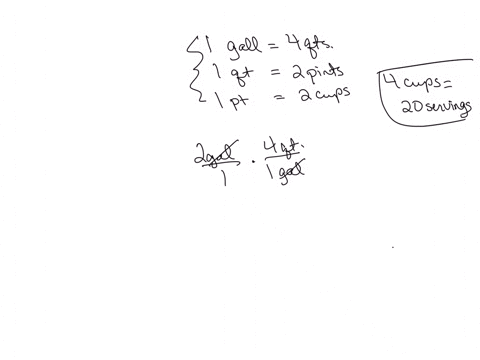 1 gall = 4 qts.
1 qt = 2 pints
1 pt = 2 cups
4 cups =
20 servings
2 gal/1 · 4 qt./1 gal